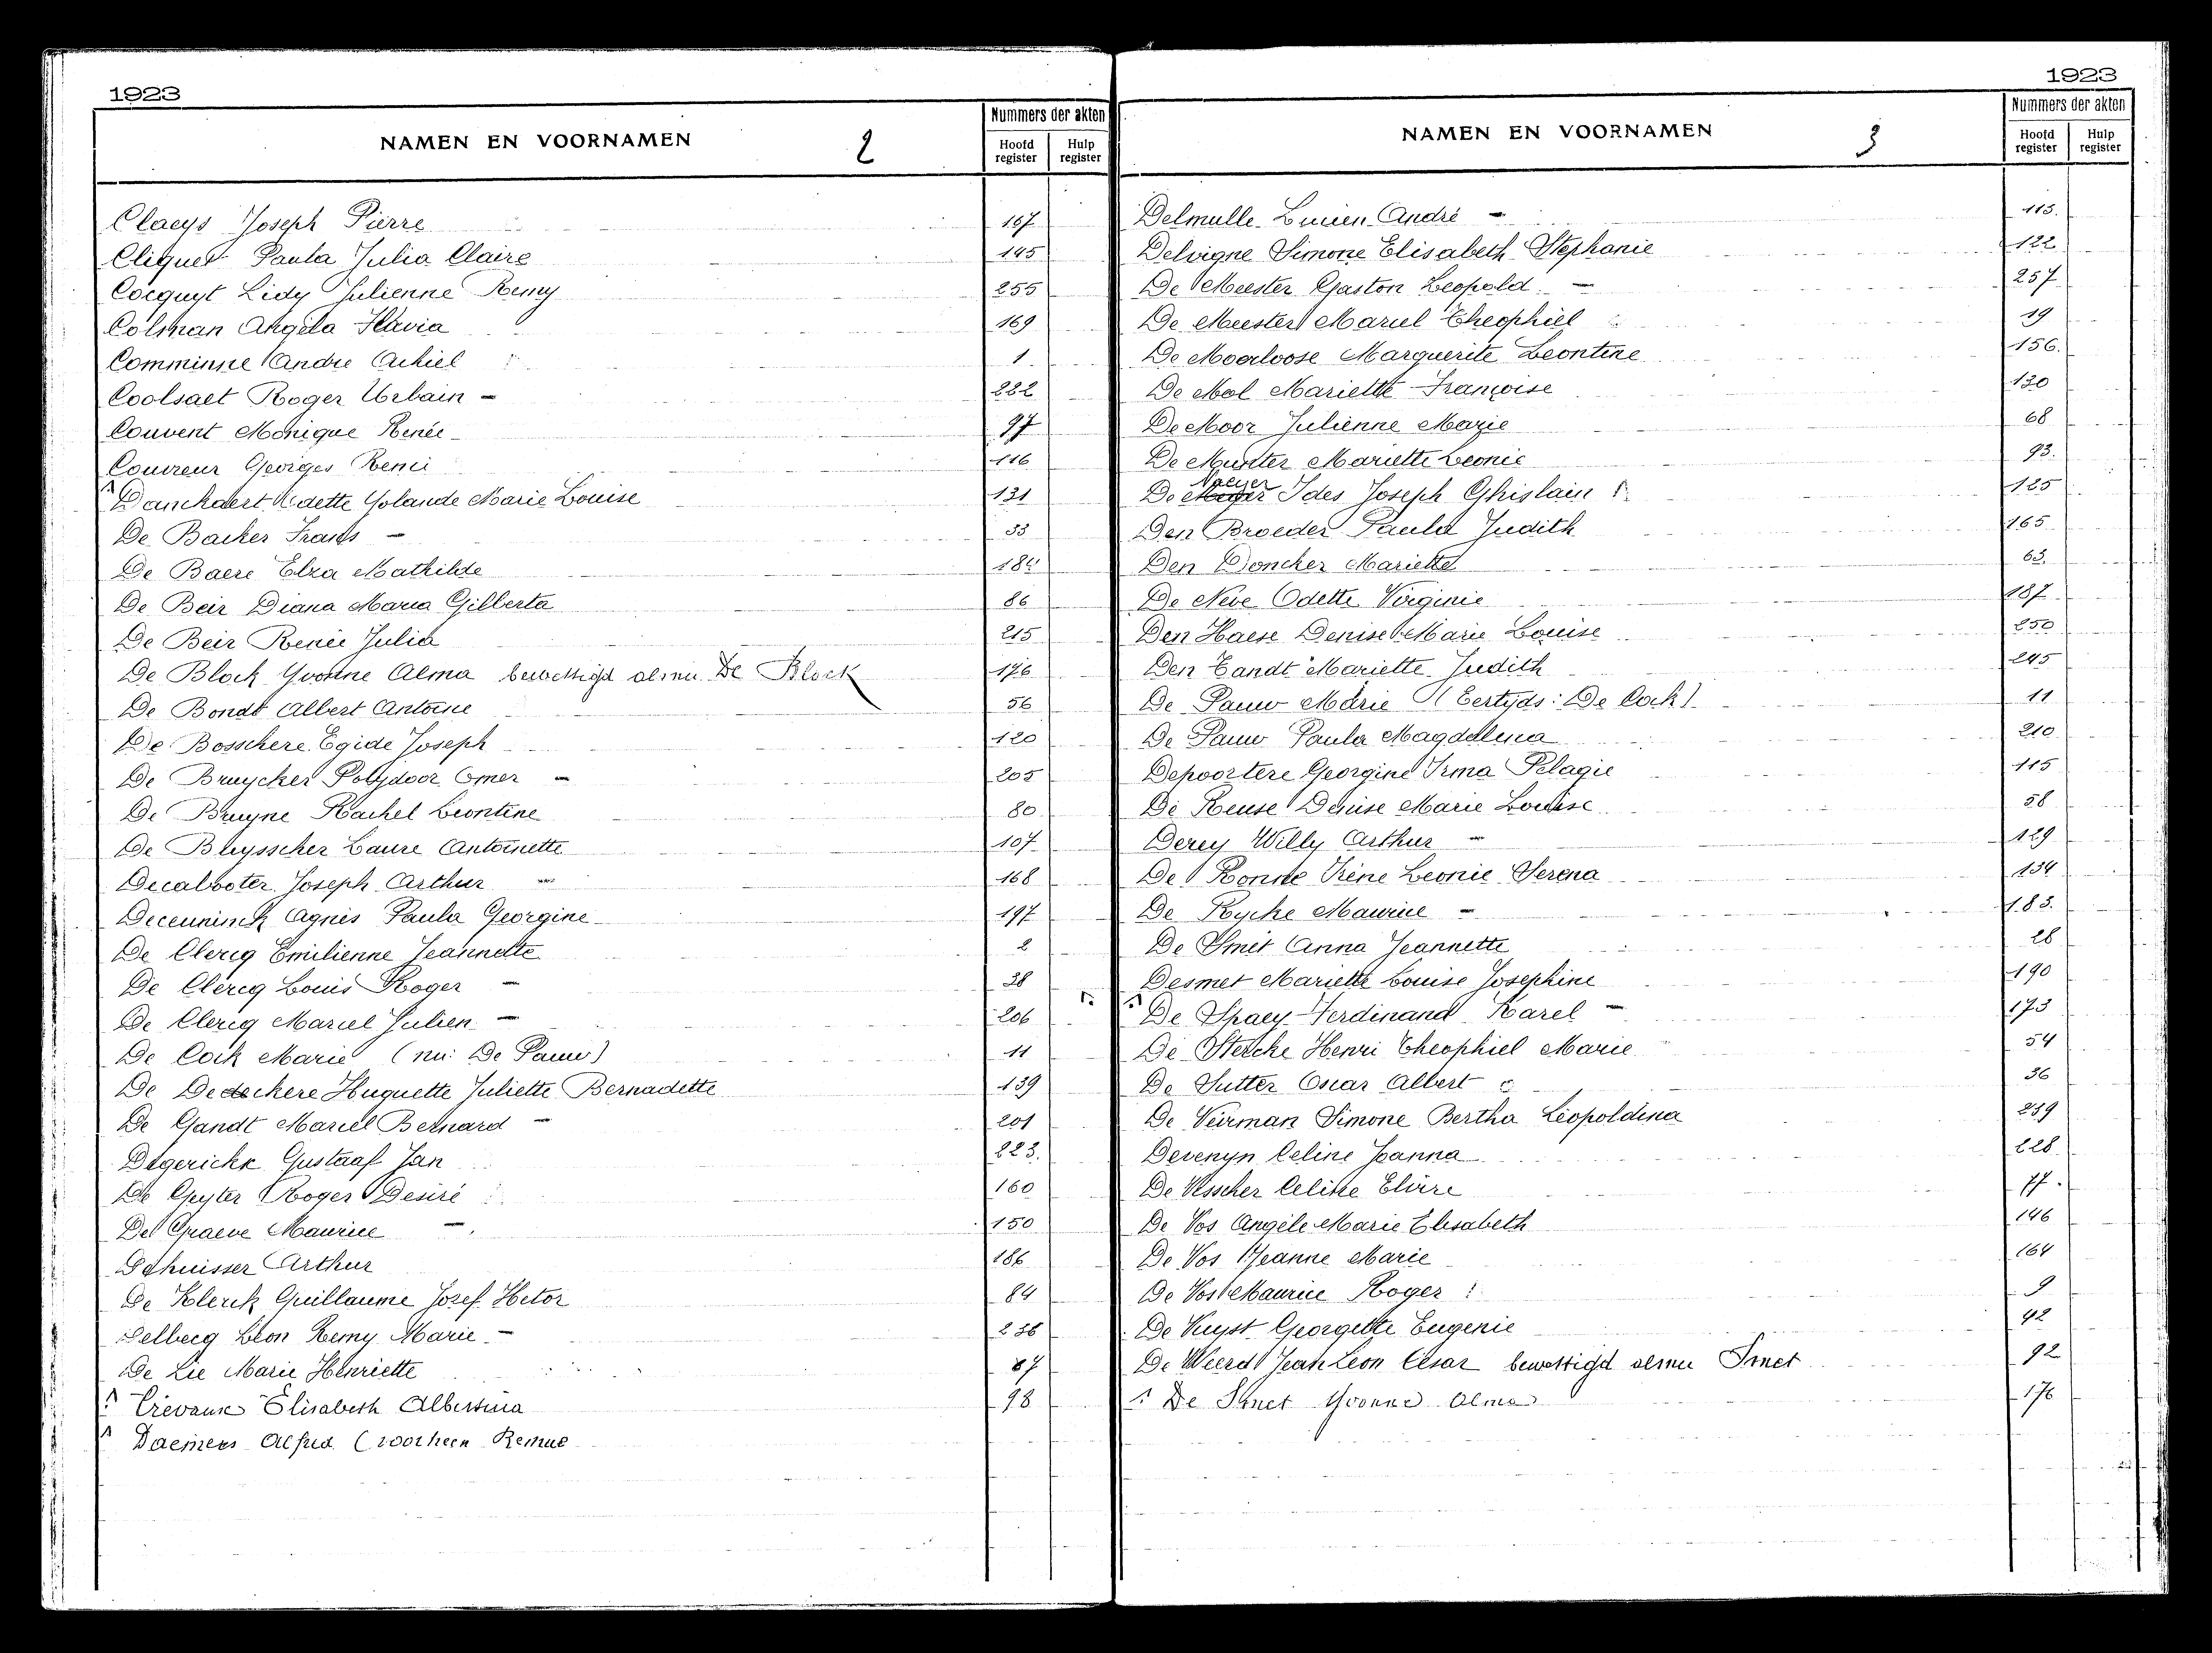 1923
NAMEN EN VOORNAMEN
2
Nummers der akten
Hoofd register
Hulp register
Claeys Joseph Pierre 167
Cliquet Paula Julia Claire 145
Cocquyt Lidy Julienne Remy 255
Colman Angela Flavia 169
Comminne Andre Achiel 1
Coolsaet Roger Urbain - 222
Couvent Monique Renée 97
Couvreur Georges Remi 116
Danckaert Odette Yolande Marie Louise 131
De Backer Frans - 33
De Baere Elza Mathilde 184
De Beir Diana Maria Gilberta 86
De Beir Renée Julia 215
De Block Yvonne Alma bewettigd als nu De Block 176
De Bondt Albert Antoine 56
De Bosschere Egide Joseph 120
De Bruycker Polydoor Omer - 205
De Bruyne Rachel Leontine 80
De Buysscher Laure Antoinette 107
Decalwoter Joseph Arthur 168
Deceuninck Agnès Paula Georgine 197
De Clercq Emilienne Jeannette 2
De Clercq Louis Roger - 38
De Clercq Marcel Julien - 206
De Cock Marie (nu: De Pauw) 11
De Dedeckere Huguette Juliette Bernadette 139
De Gandt Marcel Bernard - 201
Degerickx Gustaaf Jan 223.
De Gryter Roger Desiré 160
De Graeve Maurice - 150
Dehuisser Arthur 186
De Klerck Guillaume Jozef Hector 84
Delbecq Leon Remy Marie - 236
De Lie Marie Henriette 87
Elisabeth Albertina 98
Daemers Alfred (voorheen Remue
1923
NAMEN EN VOORNAMEN
3
Nummers der akten
Hoofd register
Hulp register
Delmulle Lucien André - 113.
Delvigne Simone Elisabeth Stephanie 122
De Meester Gaston Leopold - 257
De Meester Marcel Theophiel 19
De Moerloose Marguerite Leontine 156.
De Mol Mariette Françoise 130
De Moor Julienne Marie 68
De Munter Mariette Leonie 93.
Naeyer
De Ides Joseph Ghislain 125
Den Broeder Paula Judith 165
Den Doncker Mariette 63.
De Neve Odette Virginie 187
Den Haese Denise Marie Louise 250
Den Tandt Mariette Judith 245
De Pauw Marie (Eertyds: De Cock) 11
De Pauw Paula Magdalena 210
Depoortere Georgine Irma Pelagie 115
De Reuse Denise Marie Louise 58
Derey Willy Arthur - 129
De Ronne Irène Leonie Serena 134
De Rycke Maurice - 183.
De Smet Anna Jeannette 28
Desmet Mariette Louise Josephine 190
De Spaey Ferdinand Karel - 173
De Stercke Henri Theophiel Marie 54
De Sutter Oscar Albert 36
De Veirman Simone Bertha Leopoldina 239
Devenyn Celine Joanna 228
De Visscher Celine Elvire 77.
De Vos Angèle Marie Elisabeth 146
De Vos Jeanne Marie 164
De Vos Maurice Roger 9
De Vuyst Georgette Eugenie 42
De Weerd Jean Leon César bewettigd als nu Smet 92
De Smet Yvonne Alma 176